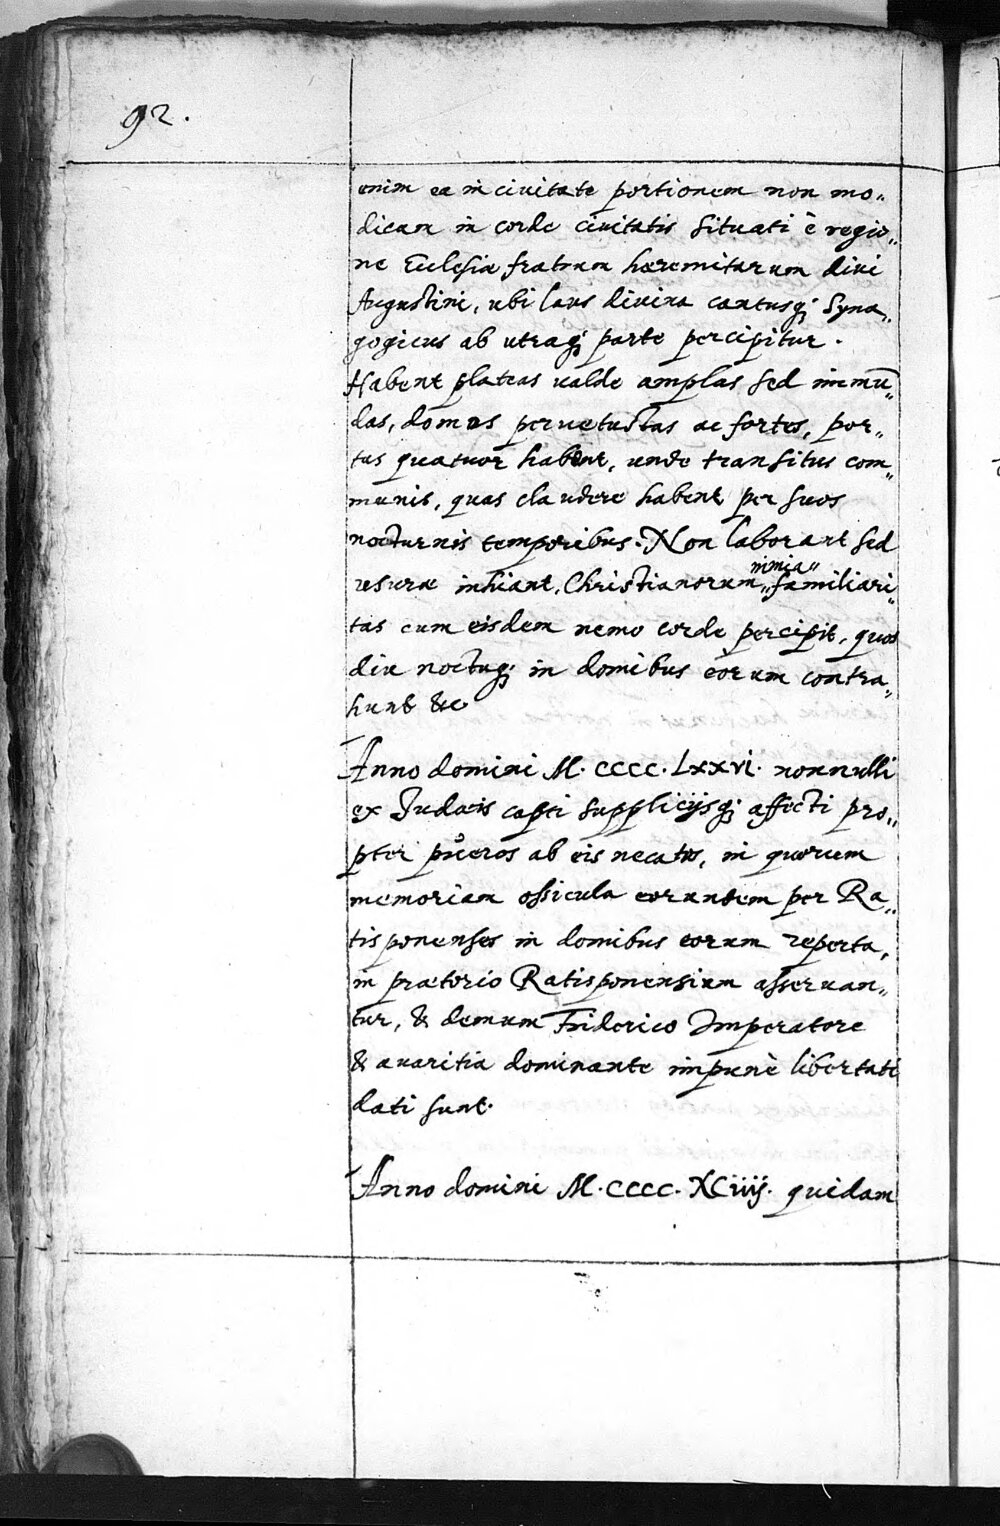 92.
enim ea in ciuitate portionem non mo„
dicam in corde ciuitatis situati è regio„
ne Ecclesiæ fratrum hæremitarum diui
Augustini, ubi laus diuina cantusq; Syna„
gogicus ab utraq; parte percipitur.
Habent plateas ualde amplas sed immū„
das, domos peruetustas ac fortes, por„
tas quatuor habent, unde transitus com„
munis, quas claudere habent per suos
nocturnis temporibus. Non laborant sed
usuræ inhiant, Christianorum „familiari„
nimia„
tas cum eisdem nemo corde percipit, quos
diu noctuq; in domibus eorum contra„
hunt &c
Anno domini M. CCCC. LXXVI. nonnulli
ex Judæis capti supplicijsq; affecti pro„
pter půeros ab eis necatos, in quorum
memoriam ossicula eorundem per Ra„
tisponenses in domibus eorum reperta,
in prætorio Ratisponensium asseruan„
tur, & demum Friderico Imperatore
& auaritia dominante impunè libertati
dati sunt.
Anno domini M. CCCC. XCiiij. quidam